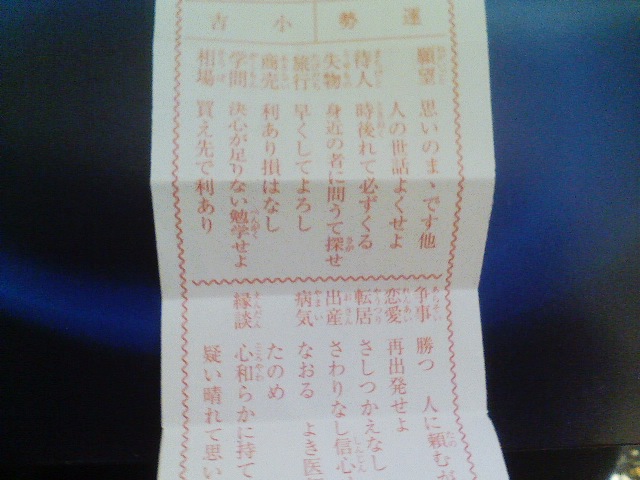 運勢 小吉
願望 思いのまゝです他
人の世話よくせよ
待人 時後れて必ずくる
失物 身近の者に問うて探せ
旅行 早くしてよろし
商売 利あり損はなし
学問 決心が足りない勉学せよ
相場 買え先で利あり
争事 勝つ 人に頼むが
恋愛 再出発せよ
転居 さしつかえなし
出産 さわりなし信心
病気 なおる よき医
たのめ
縁談 心和らかに持て
疑い晴れて思い